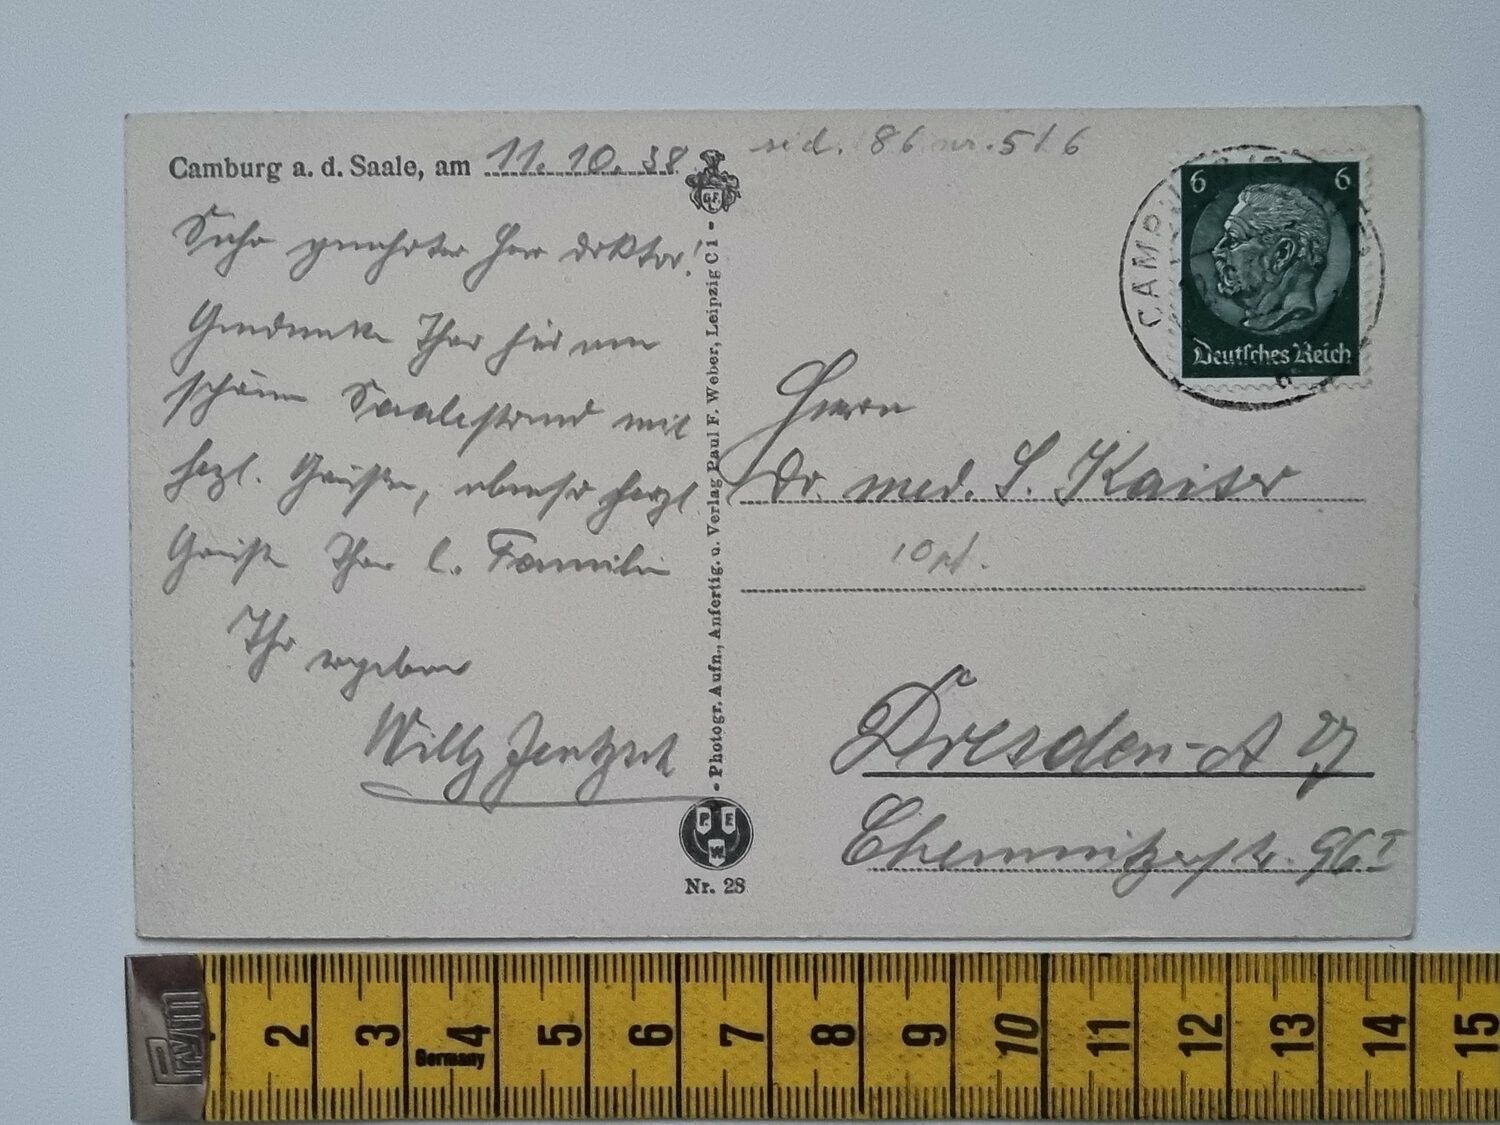 Camburg a. d. Saale, am 11. 10. 38
Sehr geehrter Herr Doktor!
Gedenke Ihrer hier am
schönen Saalestrand mit
herzl. Grüßen, ebenso herzl
Grüße Ihrer l. Familie
Ihr ergebener
Willy
Photogr. Aufn., Anfertig. u. Verlag Paul F. Weber, Leipzig C 1
P. F. W.
Nr. 28
86 nr. 516
CAMB
6 6
Deutsches Reich
Herrn
Dr. med. S. Kaiser
10 pf.
Dresden-A 27
Chemnitzerstr. 96 I
Prym
2 3 4 5 6 7 8 9 10 11 12 13 14 15
Germany